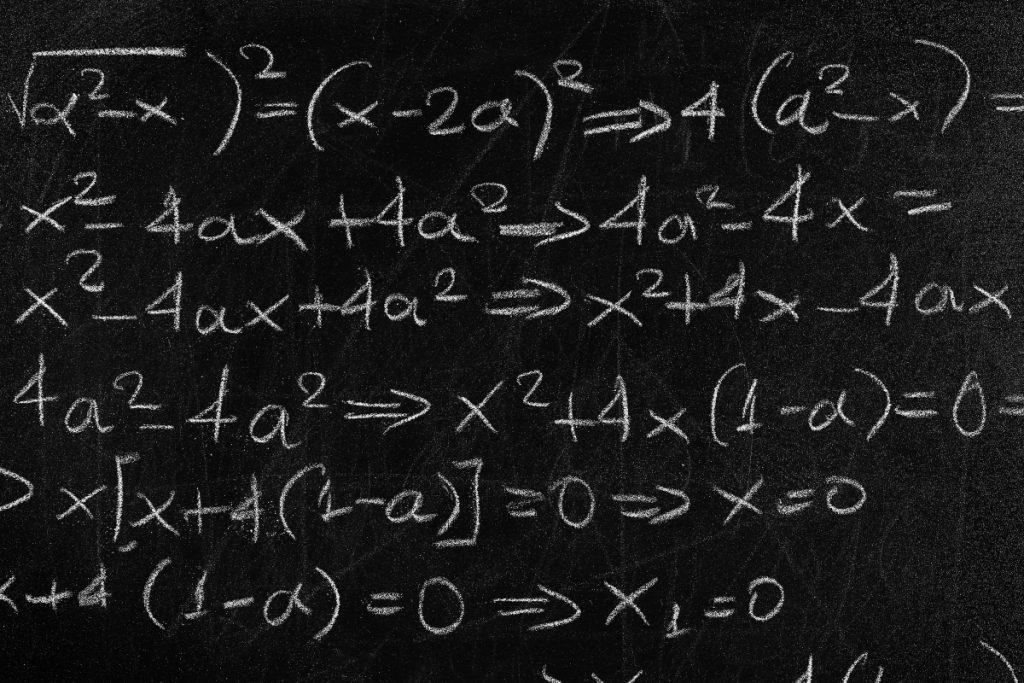 √(a²-x) )² = (x-2a)² ⇒ 4(a²-x) =
x² - 4ax + 4a² ⇒ 4a² - 4x =
x² - 4ax + 4a² ⇒ x² + 4x - 4ax
4a² = 4a² ⇒ x² + 4x(1-a) = 0 =
> x[x+4(1-a)] = 0 ⇒ x = 0
x+4(1-a) = 0 ⇒ x₁ = 0